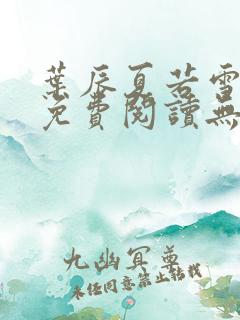 葉辰夏若雪
免費閱讀無
九幽冥尊
未经同意禁止转载